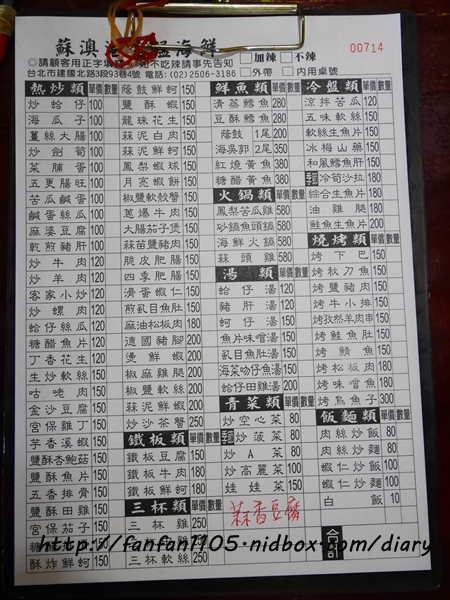 蘇澳港 海鮮
加辣 不辣
00714
◎請顧客用正字填 不吃辣請事先告知
台北市建國北路3段93巷4號 電話:(02)2506-3186 外帶 內用桌號
熱炒類 單價 數量
炒蛤仔 100
海瓜子 100
薑絲大腸 100
炒劍筍 100
菜脯蛋 100
五更腸旺 100
苦瓜鹹蛋 100
鹹蛋絲瓜 100
麻婆豆腐 100
乾煎豬肝 100
炒牛肉 120
炒羊肉 120
客家小炒 120
炒螺肉 120
蛤仔絲瓜 120
糖醋魚片 120
丁香花生 120
生炒軟絲 150
咕咾肉 150
金沙豆腐 150
宮保雞丁 150
芋香溪蝦 150
鹽酥杏鮑菇 150
鹽酥魚片 150
五香排骨 150
鹽酥田雞 150
宮保茄子 150
酥炸鮮蚵 150
蔭鼓鮮蚵 150
鹽酥蝦 150
龍珠花生 150
蒜泥白肉 150
蒜泥鮮蚵 150
鳳梨蝦球 150
月亮蝦餅 150
椒鹽軟殼蟹 150
蔥爆牛肉 150
大腸茄子煲 150
蒜苗鹽豬肉 150
脆皮肥腸 150
四季肥腸 150
滑蛋蝦仁 150
煎虱目魚肚 150
麻油松板肉 180
德國豬腳 200
燙鮮蝦 200
椒麻雞腿 200
椒鹽軟絲 200
蒜泥鮮蝦 200
炒沙茶蟹 250
鐵板類 單價 數量
鐵板豆腐 150
鐵板牛肉 180
鐵板鮮蚵 180
三杯類 單價 數量
三杯雞 250
250
250
鮮魚類 單價 數量
清蒸鱈魚 280
豆酥鱈魚 280
蔭鼓 1尾 200
海吳郭 2尾 350
紅燒黃魚 380
糖醋黃魚 380
火鍋類 單價 數量
鳳梨苦瓜雞 580
砂鍋魚頭鍋 580
海鮮火鍋 580
蒜頭雞 580
湯類 單價 數量
蛤仔湯 120
豬肝湯 120
蚵仔湯 120
魚片味噌湯 150
虱目魚肚湯 150
海菜吻仔魚湯 150
蛤仔田雞湯 200
青菜類 單價 數量
炒空心菜 80
炒菠菜 80
炒A菜 80
炒高麗菜 100
娃娃菜 150
蒜香豆腐
冷盤類 單價 數量
涼拌苦瓜 120
五味軟絲 150
軟絲生魚片 150
冰梅山藥 150
和風鱈魚肝 150
冷筍沙拉 180
綜合生魚片 180
油雞腿 180
鮭魚生魚片 200
燒烤類 單價 數量
烤下巴 150
烤秋刀魚 150
烤鹽豬肉 150
烤牛小排 150
烤孜然羊肉串 150
烤鮭魚肚 150
烤鯖魚 150
烤松板肉 180
烤味噌魚 180
烤烏魚子 300
飯麵類 單價 數量
肉絲炒飯 80
肉絲炒麵 80
蝦仁炒飯 100
蝦仁炒麵 100
白飯 10
合計
http://fanfan1105.nidbox.com/diary